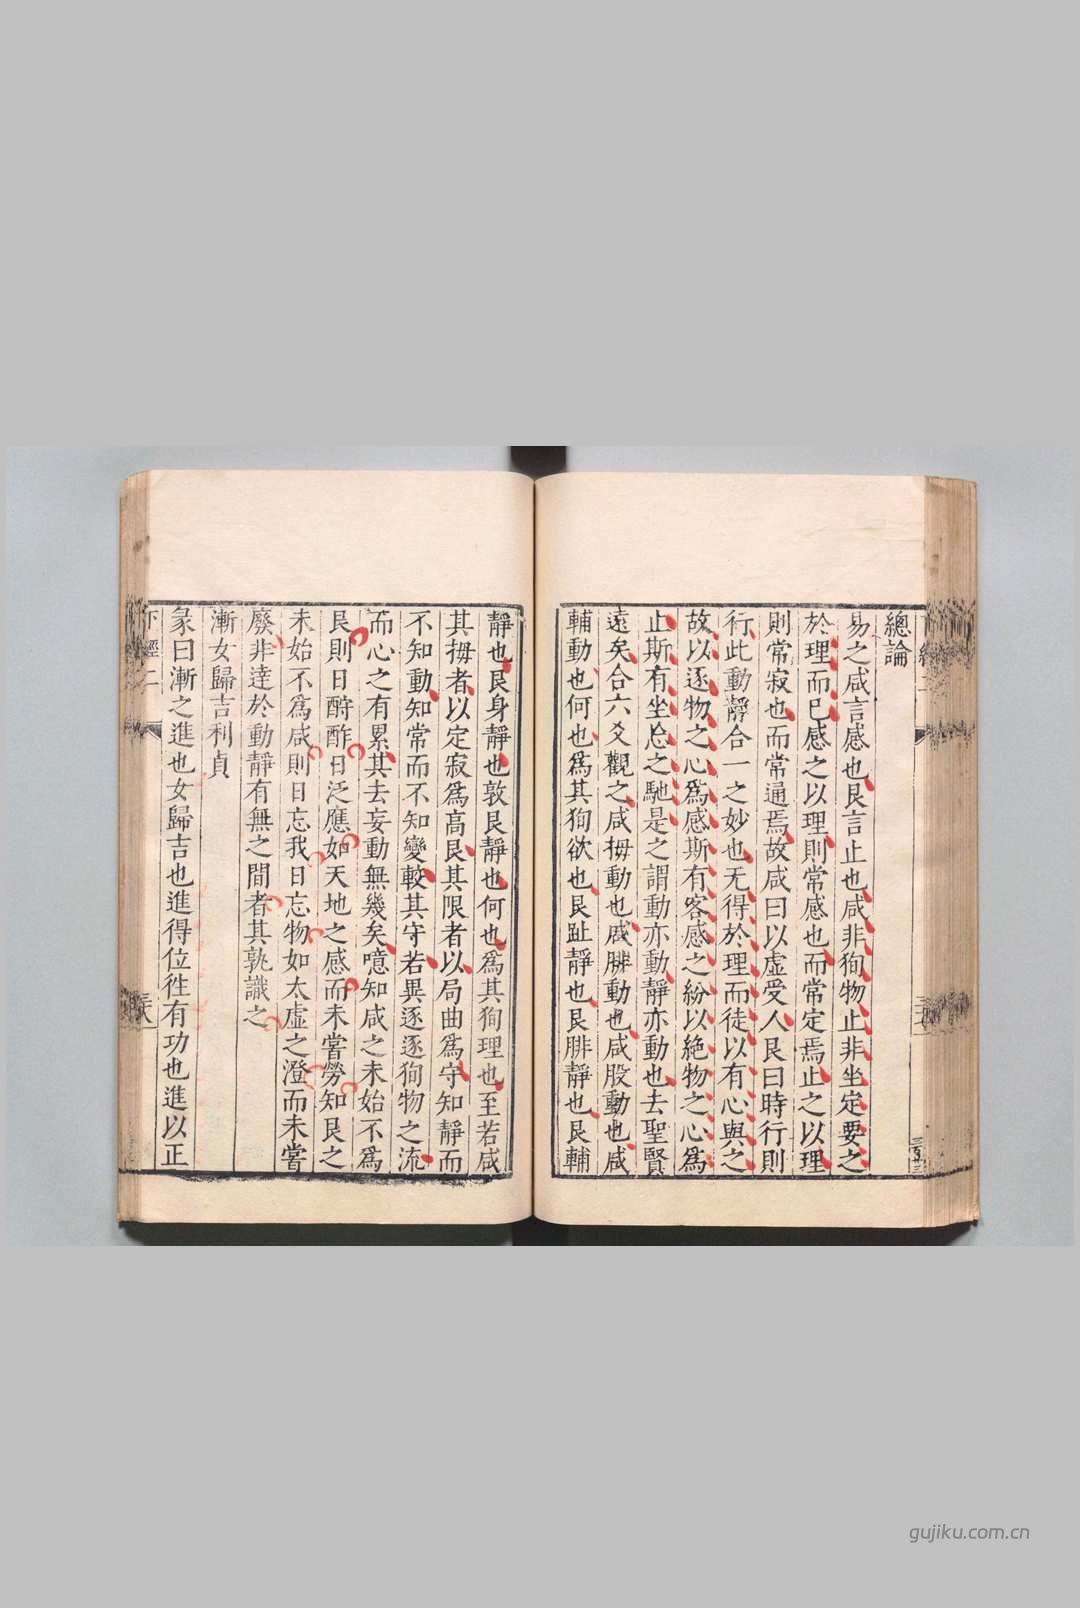 總論
易之咸言感也艮言止也咸非狥物止非坐定要之
於理而已感之以理則常感也而常定焉止之以理
則常寂也而常通焉故咸曰以虛受人艮曰時行則
行此動靜合一之妙也无得於理而徒以有心與之
故以逐物之心爲感斯有客感之紛以絶物之心爲
止斯有坐忘之馳是之謂動亦動靜亦動也去聖賢
遠矣合六爻觀之咸拇動也咸腓動也咸股動也咸
輔動也何也爲其狥欲也艮趾靜也艮腓靜也艮輔
靜也艮身靜也敦艮靜也何也爲其狥理也至若咸
其拇者以定寂爲高艮其限者以局曲爲守知靜而
不知動知常而不知變較其守若異逐逐狥物之流
而心之有累其去妄動無幾矣噫知咸之未始不爲
艮則日酧酢日泛應如天地之感而未嘗勞知艮之
未始不爲咸則日忘我日忘物如太虛之澄而未嘗
廢非達於動靜有無之間者其孰識之
漸女歸吉利貞
彖曰漸之進也女歸吉也進得位徃有功也進以正
下經二
gujiku.com.cn